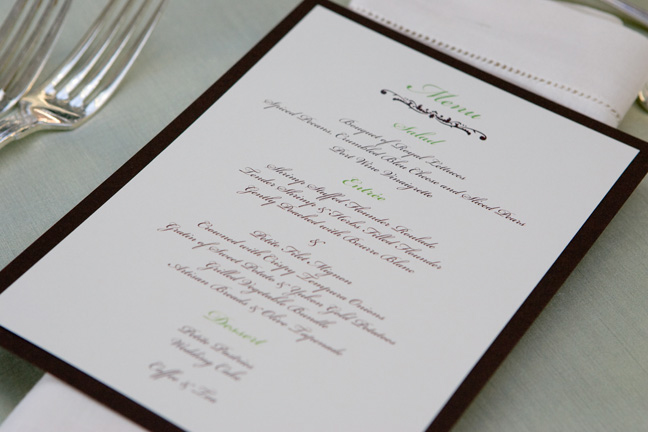 Menu
Salad
Bouquet of Royal Lettuces
Spiced Pecans, Crumbled Bleu Cheese and Sliced Pears
Port Wine Vinaigrette
Entrée
Shrimp Stuffed Flounder Roulade
Tender Shrimp & Herbs Filled Flounder
Gently Poached with Beurre Blanc
&
Petite Filet Mignon
Crowned with Crispy Tempura Onions
Gratin of Sweet Potato & Yukon Gold Potatoes
Grilled Vegetable Bundle
Artisan Breads & Olive Tapenade
Dessert
Petite Pastries
Wedding Cake
Coffee & Tea